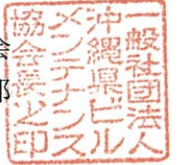 一般社団法人
沖縄県ビル
メンテナンス
協会長之印